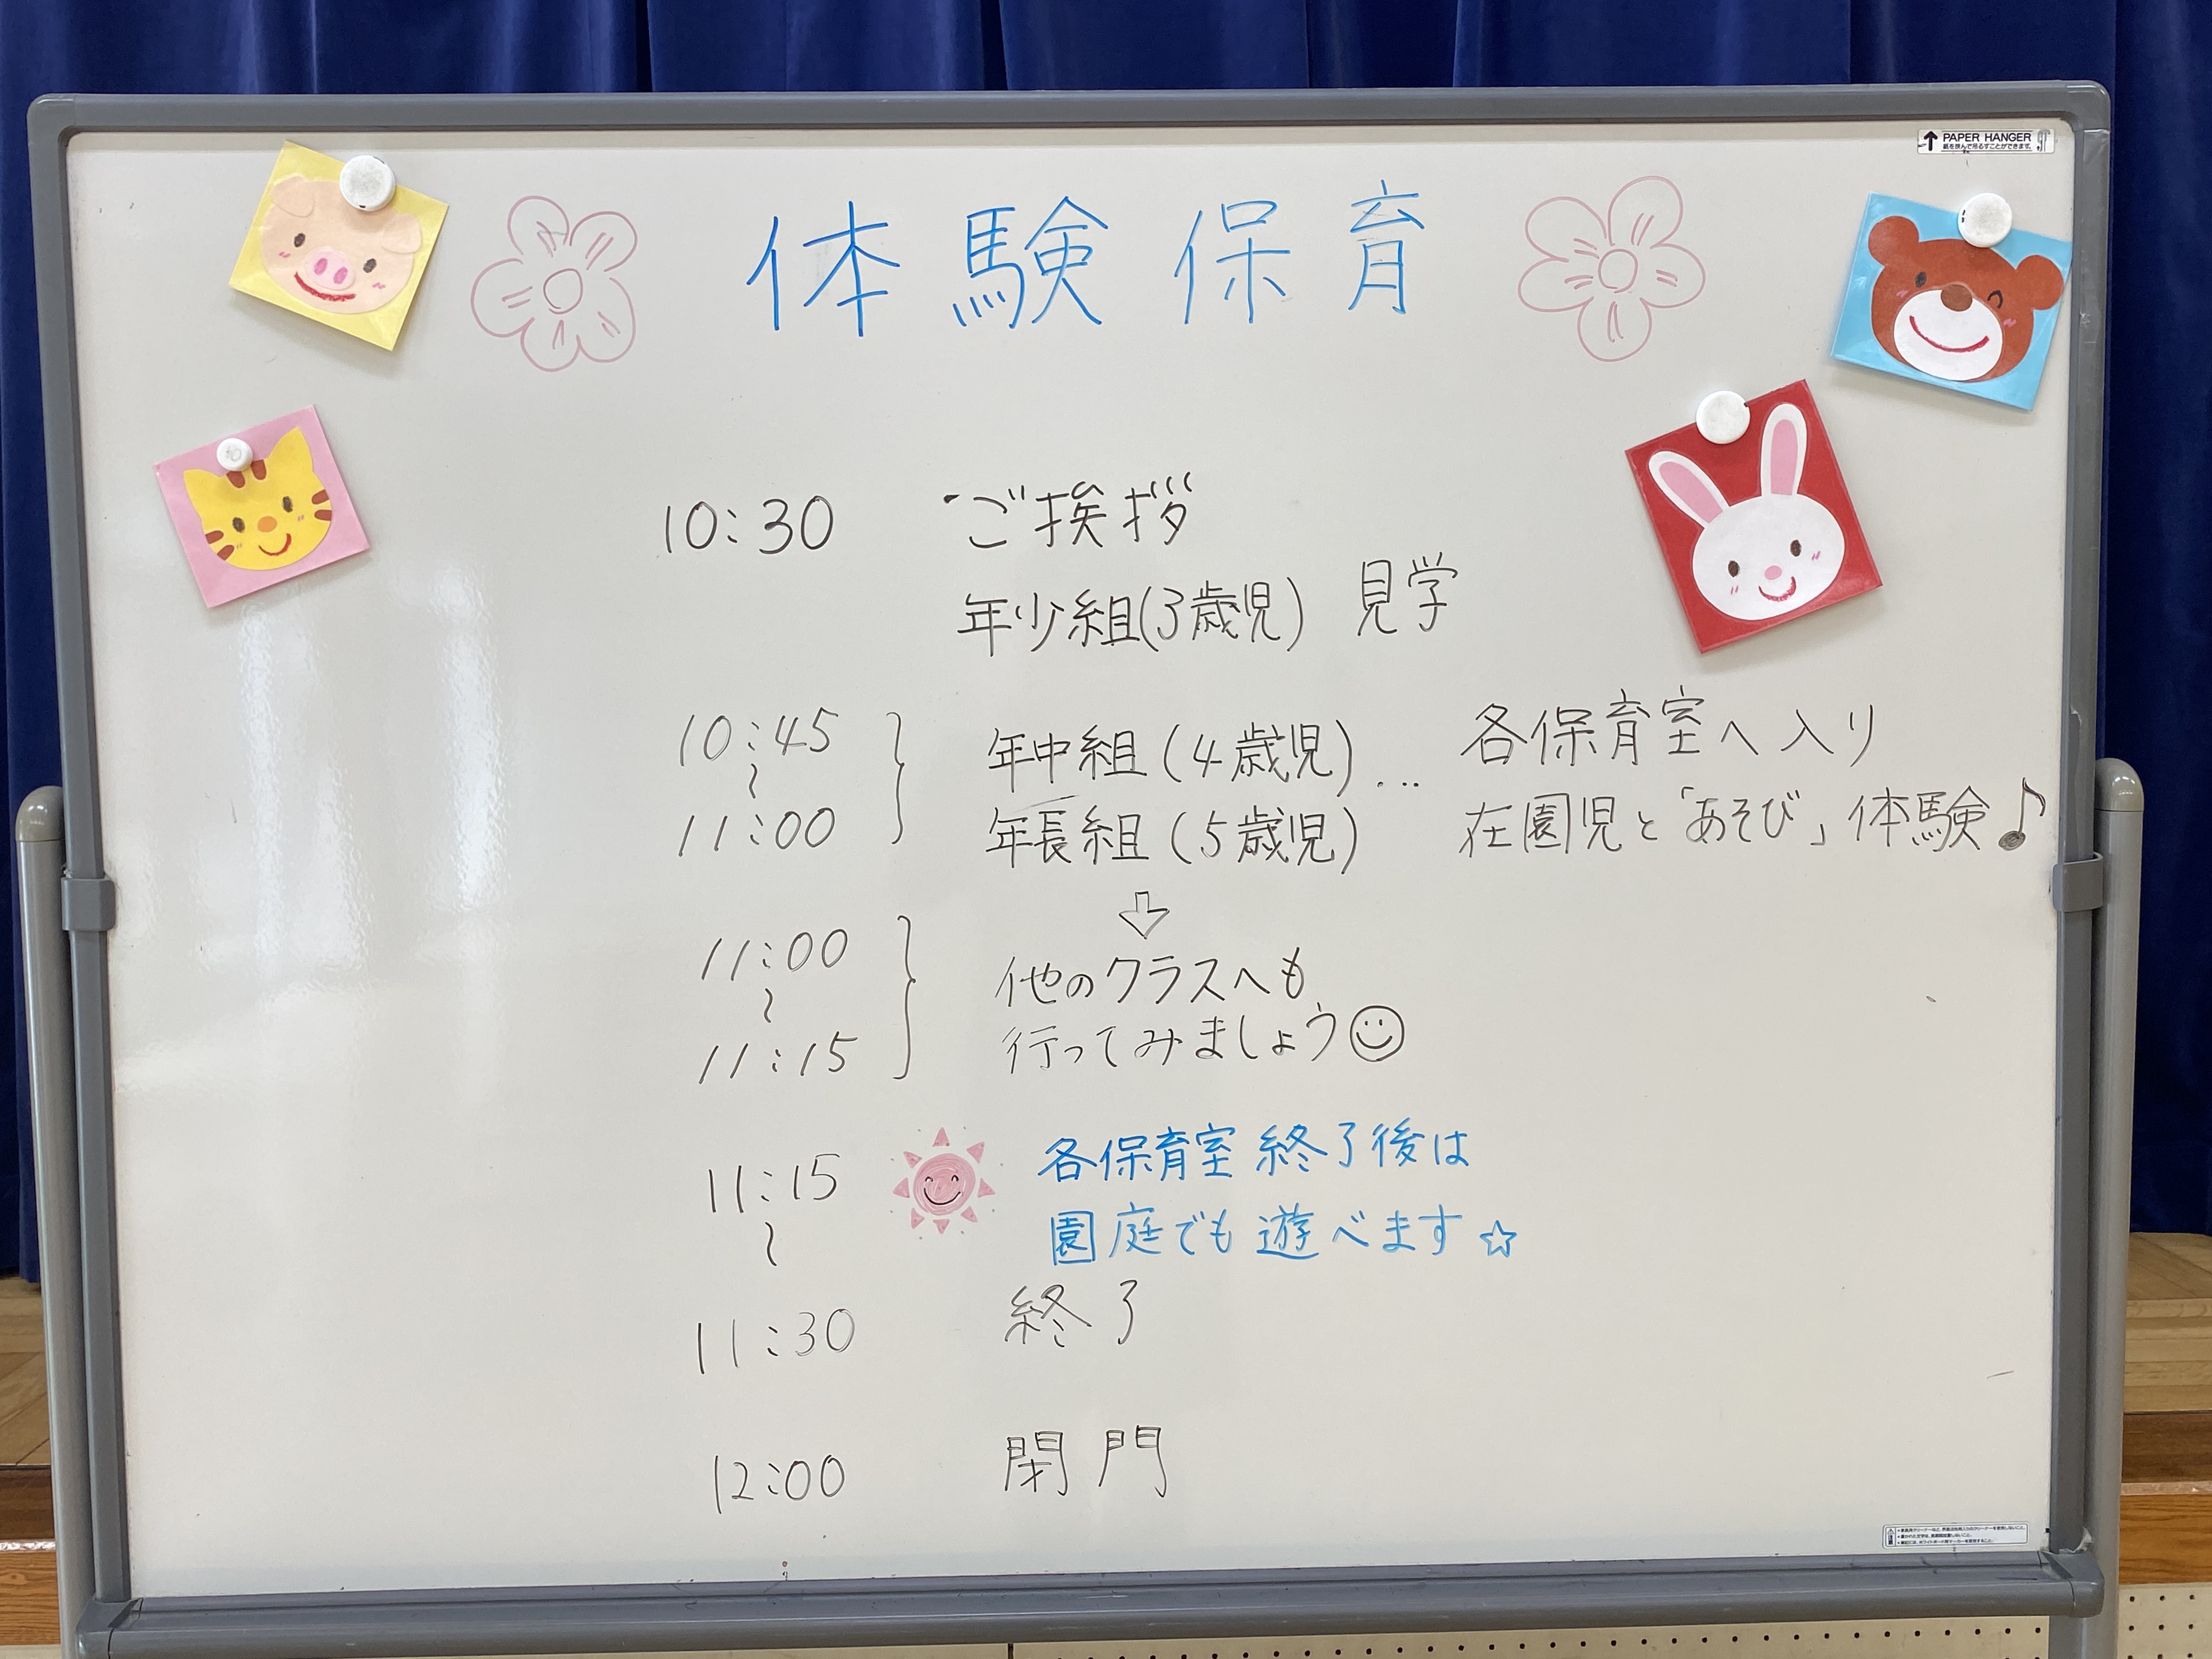 PAPER HANGER
紙を挟んで吊るすことができます。
体験保育
10:30 ご挨拶
年少組(3歳児) 見学
10:45 〜 11:00
年中組(4歳児)… 各保育室へ入り
年長組(5歳児) 在園児と「あそび」体験♪
⇩
11:00 〜 11:15
他のクラスへも
行ってみましょう☺
11:15 〜
各保育室終了後は
園庭でも遊べます☆
11:30 終了
12:00 閉門